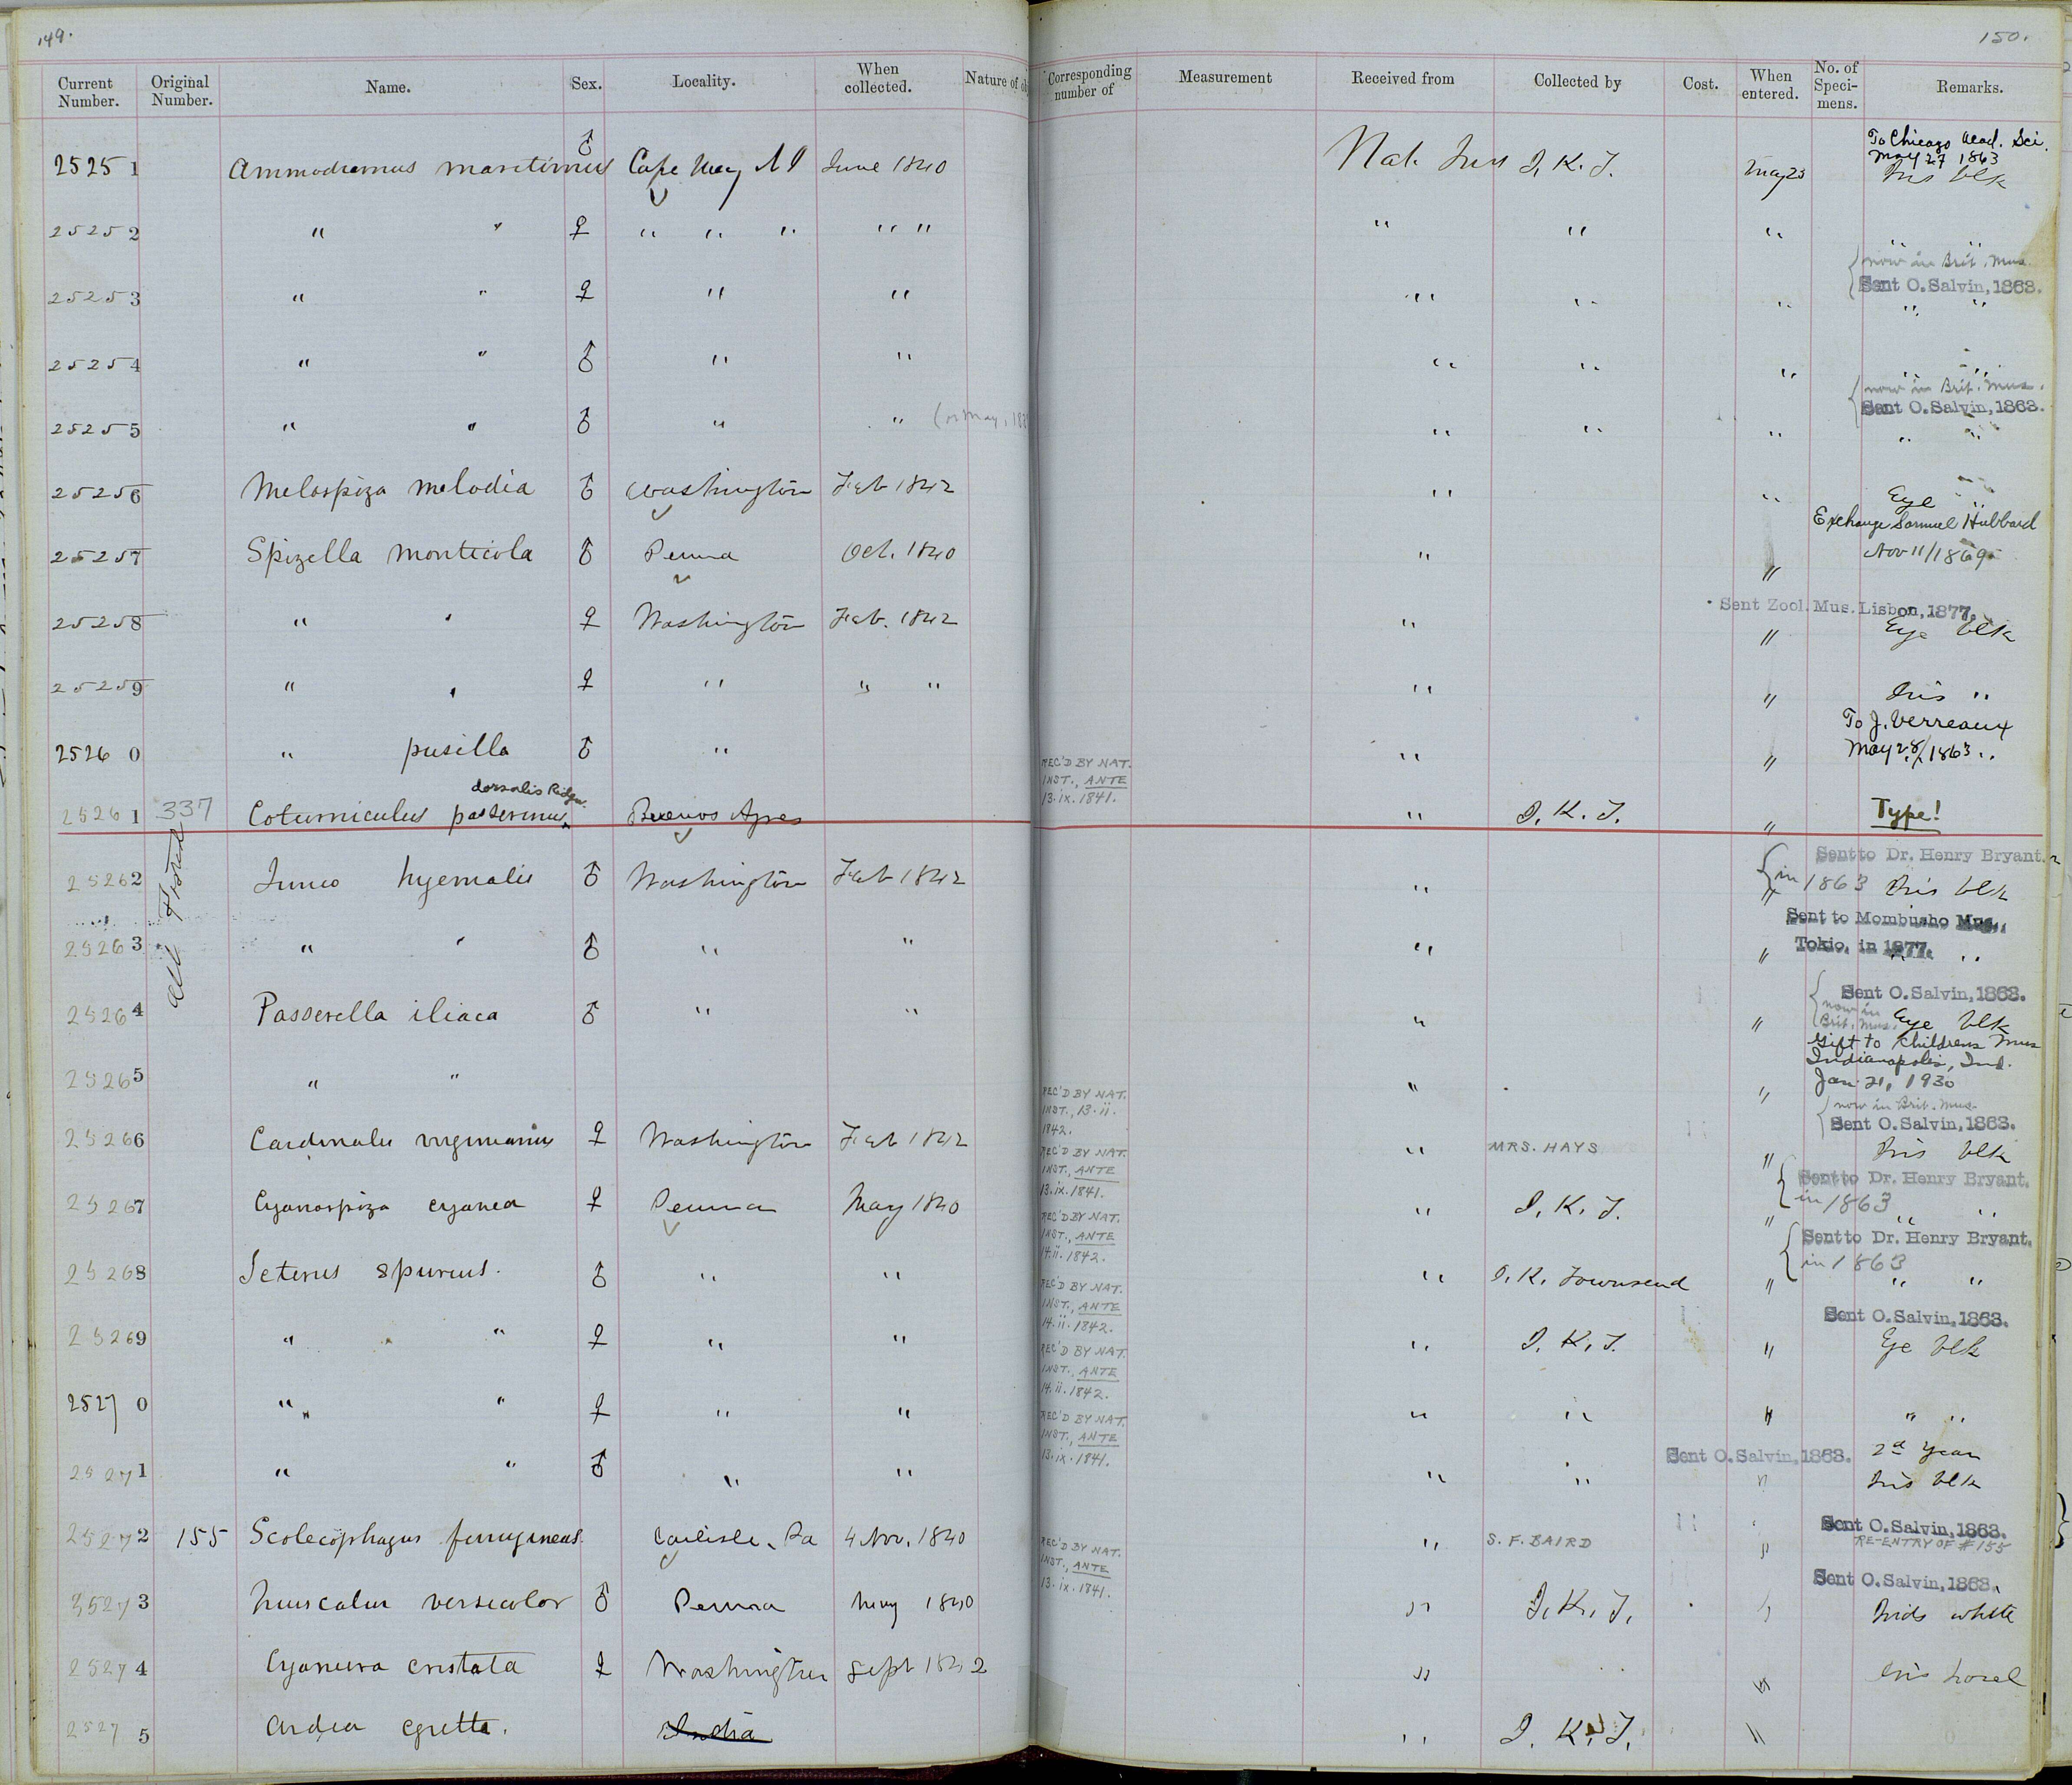 149.
150.
Current Number. Original Number. Name. Sex. Locality. When collected. Nature of Corresponding number of Measurement Received from Collected by Cost. When entered. No. of Speci-mens. Remarks.
To Chicago Acad. Sci.
May 27 1863
25251 Ammodramus maritimus ♂ Cape May NJ June 1840 Nat. Inst J. K. T. May 23 Iris blk
25252 " " ♀ " " " " " " " " " "
now in Brit. Mus.
Sent O. Salvin, 1863.
25253 " " ♀ " " " " " " "
25254 " " ♂ " " " " " " "
now in Brit. Mus.
Sent O. Salvin, 1863.
25255 " " ♂ " " (or May, 18 " " " " "
25256 Melospiza melodia ♂ Washington Feb 1842 " " Eye "
Exchange Samuel Hubbard
Nov 11/1869
25257 Spizella monticola ♂ Penna Oct. 1840 " "
Sent Zool. Mus. Lisbon, 1877.
25258 " " ♀ Washington Feb. 1842 " " Eye blk
25259 " " ♀ " " " " " Iris "
To J. Verreaux
May 28/1863 "
25260 " pusilla ♂ " " "
REC'D BY NAT.
INST., ANTE
13.ix.1841.
dorsalis Ridgw.
25261 337 Coturniculus passerinus Buenos Ayres " J. K. T. " Type!
Sent to Dr. Henry Bryant.
in 1863
25262 Junco hyemalis ♂ Washington Feb 1842 " " Iris blk
Sent to Mombusho Mus.,
Tokio, in 1877.
25263 " " ♂ " " " " " "
Sent O. Salvin, 1863.
now in
Brit. Mus.
25264 Passerella iliaca ♂ " " " " Eye blk
Gift to Childrens Mus
Indianapolis, Ind.
Jan. 21, 1930
25265 " " " "
REC'D BY NAT.
INST., 13.ii.
1842.
now in Brit. Mus.
Sent O. Salvin, 1863.
25266 Cardinalis virginianus ♀ Washington Feb 1842 " MRS. HAYS " Iris blk
REC'D BY NAT.
INST., ANTE
13.ix.1841.
Sent to Dr. Henry Bryant.
in 1863
25267 Cyanospiza cyanea ♀ Penna May 1840 " J. K. T. " " "
REC'D BY NAT.
INST., ANTE
14.ii.1842.
Sent to Dr. Henry Bryant.
in 1863
25268 Icterus spurius. ♂ " " " J. K. Townsend " " "
REC'D BY NAT.
INST., ANTE
14.ii.1842.
Sent O. Salvin, 1863.
25269 " " ♀ " " " J. K. T. " Eye blk
REC'D BY NAT.
INST., ANTE
14.ii.1842.
25270 " " ♀ " " " " " " "
REC'D BY NAT.
INST., ANTE
13.ix.1841.
Sent O. Salvin, 1863. 2d Year
25271 " " ♂ " " " " " Iris blk
Sent O. Salvin, 1863.
25272 155 Scolecophagus ferrugineus Carlisle, Pa 4 Nov. 1840 " S. F. BAIRD " RE-ENTRY OF #155
REC'D BY NAT.
INST., ANTE
13.ix.1841.
Sent O. Salvin, 1863.
25273 Quiscalus versicolor ♂ Penna May 1840 " J. K. T. " Irids white
25274 Cyanura cristata ♀ Washington Sept 1842 " " Iris hazel
25275 Ardea egretta. India " J. K. T. "